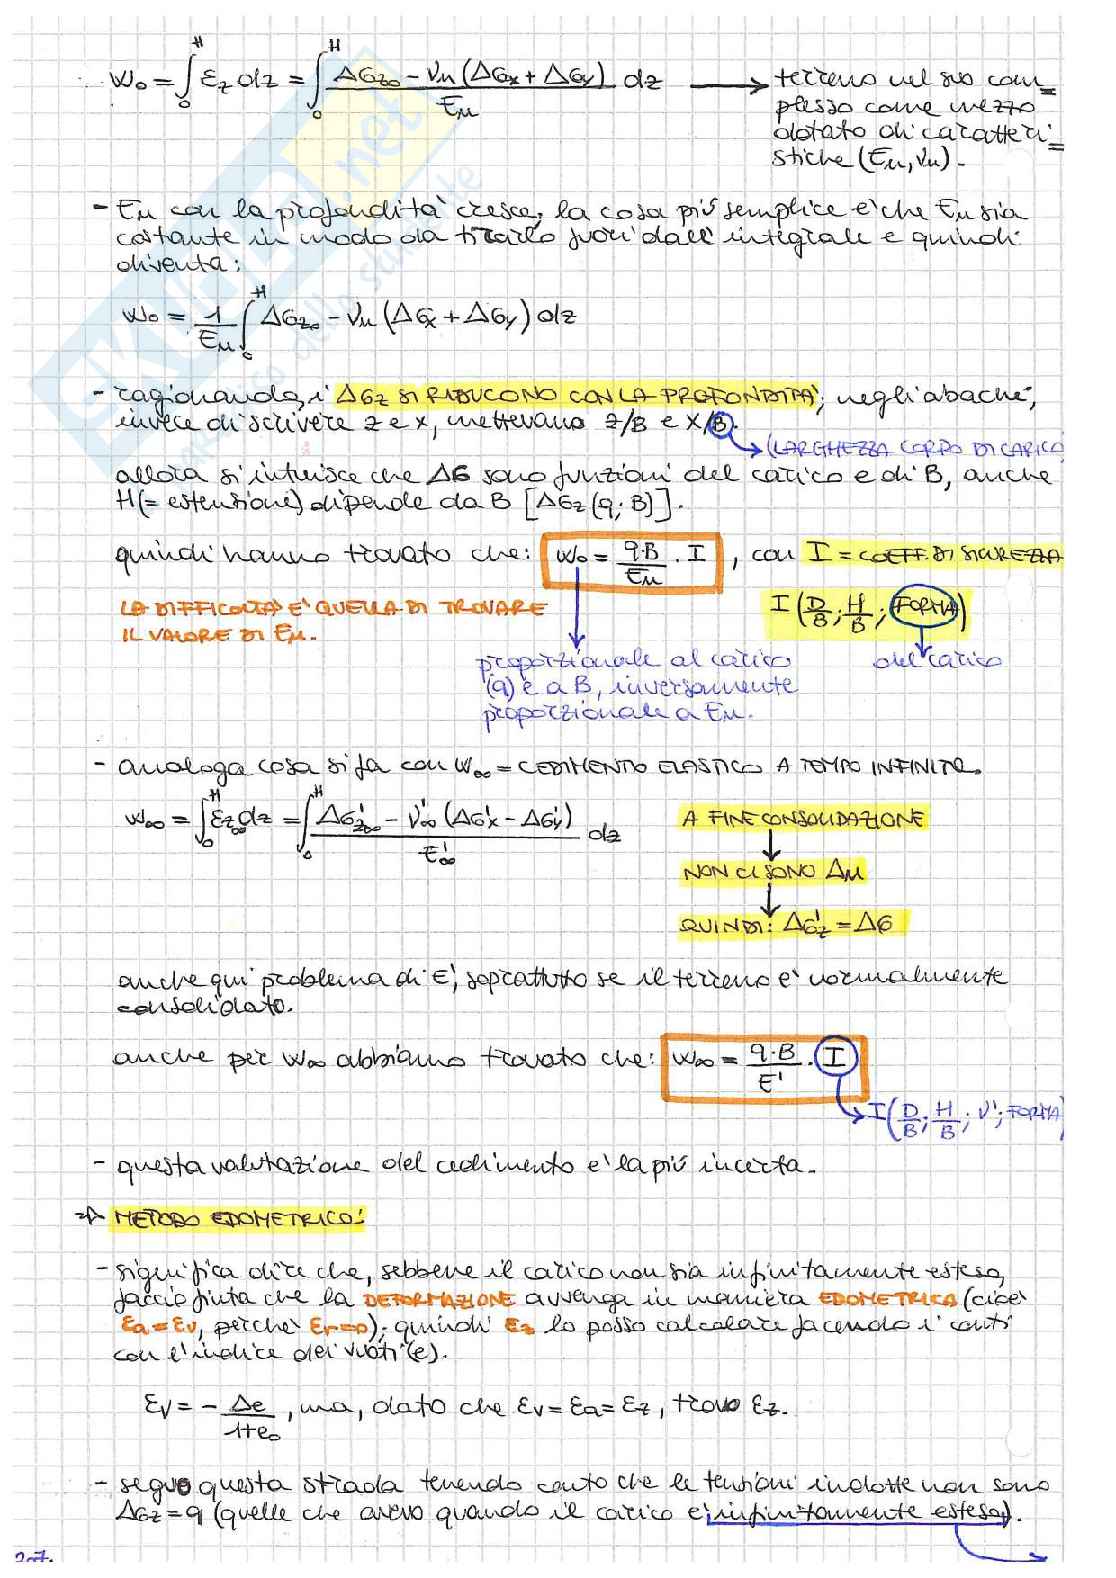 w₀ = ∫₀ᴴ ε_z dz = ∫₀ᴴ (Δσ_z₀ - ν_u (Δσ_x + Δσ_y)) / E_u dz → terreno nel suo com=
plesso come mezzo
dotato di caratteri=
stiche (E_u, ν_u).
- E_u con la profondità cresce, la cosa più semplice è che E_u sia
costante in modo da tirarlo fuori dall'integrale e quindi
diventa:
w₀ = 1/E_u ∫₀ᴴ Δσ_z₀ - ν_u (Δσ_x + Δσ_y) dz
- ragionando, i Δσ_z SI RIDUCONO CON LA PROFONDITÀ; negli abachi,
invece di scrivere z e x, mettevano z/B e x/B.
(LARGHEZZA CORPO DI CARICO)
allora si intuisce che Δσ sono funzioni del carico e di B, anche
H (= estensione) dipende da B [Δσ_z (q; B)].
quindi hanno trovato che: w₀ = q·B/E_u · I , con I = COEFF. DI SICUREZZA
LA DIFFICOLTÀ È QUELLA DI TROVARE
IL VALORE DI E_u.
I (D/B; H/B; FORMA)
proporzionale al carico
(q) e a B, inversamente
proporzionale a E_u.
del carico
- analoga cosa si fa con w∞ = CEDIMENTO ELASTICO A TEMPO INFINITO.
w∞ = ∫₀ᴴ ε_z∞ dz = ∫₀ᴴ (Δσ'_z∞ - ν'∞ (Δσ'_x - Δσ'_y)) / E'∞ dz
A FINE CONSOLIDAZIONE
↓
NON CI SONO Δu
↓
QUINDI: Δσ'_z = Δσ
anche qui problema di E', soprattutto se il terreno è normalmente
consolidato.
anche per w∞ abbiamo trovato che: w∞ = q·B/E' · I
I (D/B; H/B; ν'; FORMA)
- questa valutazione del cedimento è la più incerta.
⇒ METODO EDOMETRICO:
- significa dire che, sebbene il carico non sia infinitamente esteso,
faccio finta che la DEFORMAZIONE avvenga in maniera EDOMETRICA (cioè
ε_a = ε_v, perché ε_r = 0); quindi ε_z lo posso calcolare facendo i conti
con l'indice dei vuoti (e).
ε_v = - Δe/(1+e₀) , ma, dato che ε_v = ε_a = ε_z, trovo ε_z.
- seguo questa strada tenendo conto che le tensioni indotte non sono
Δσ_z = q (quelle che avevo quando il carico è infinitamente esteso).